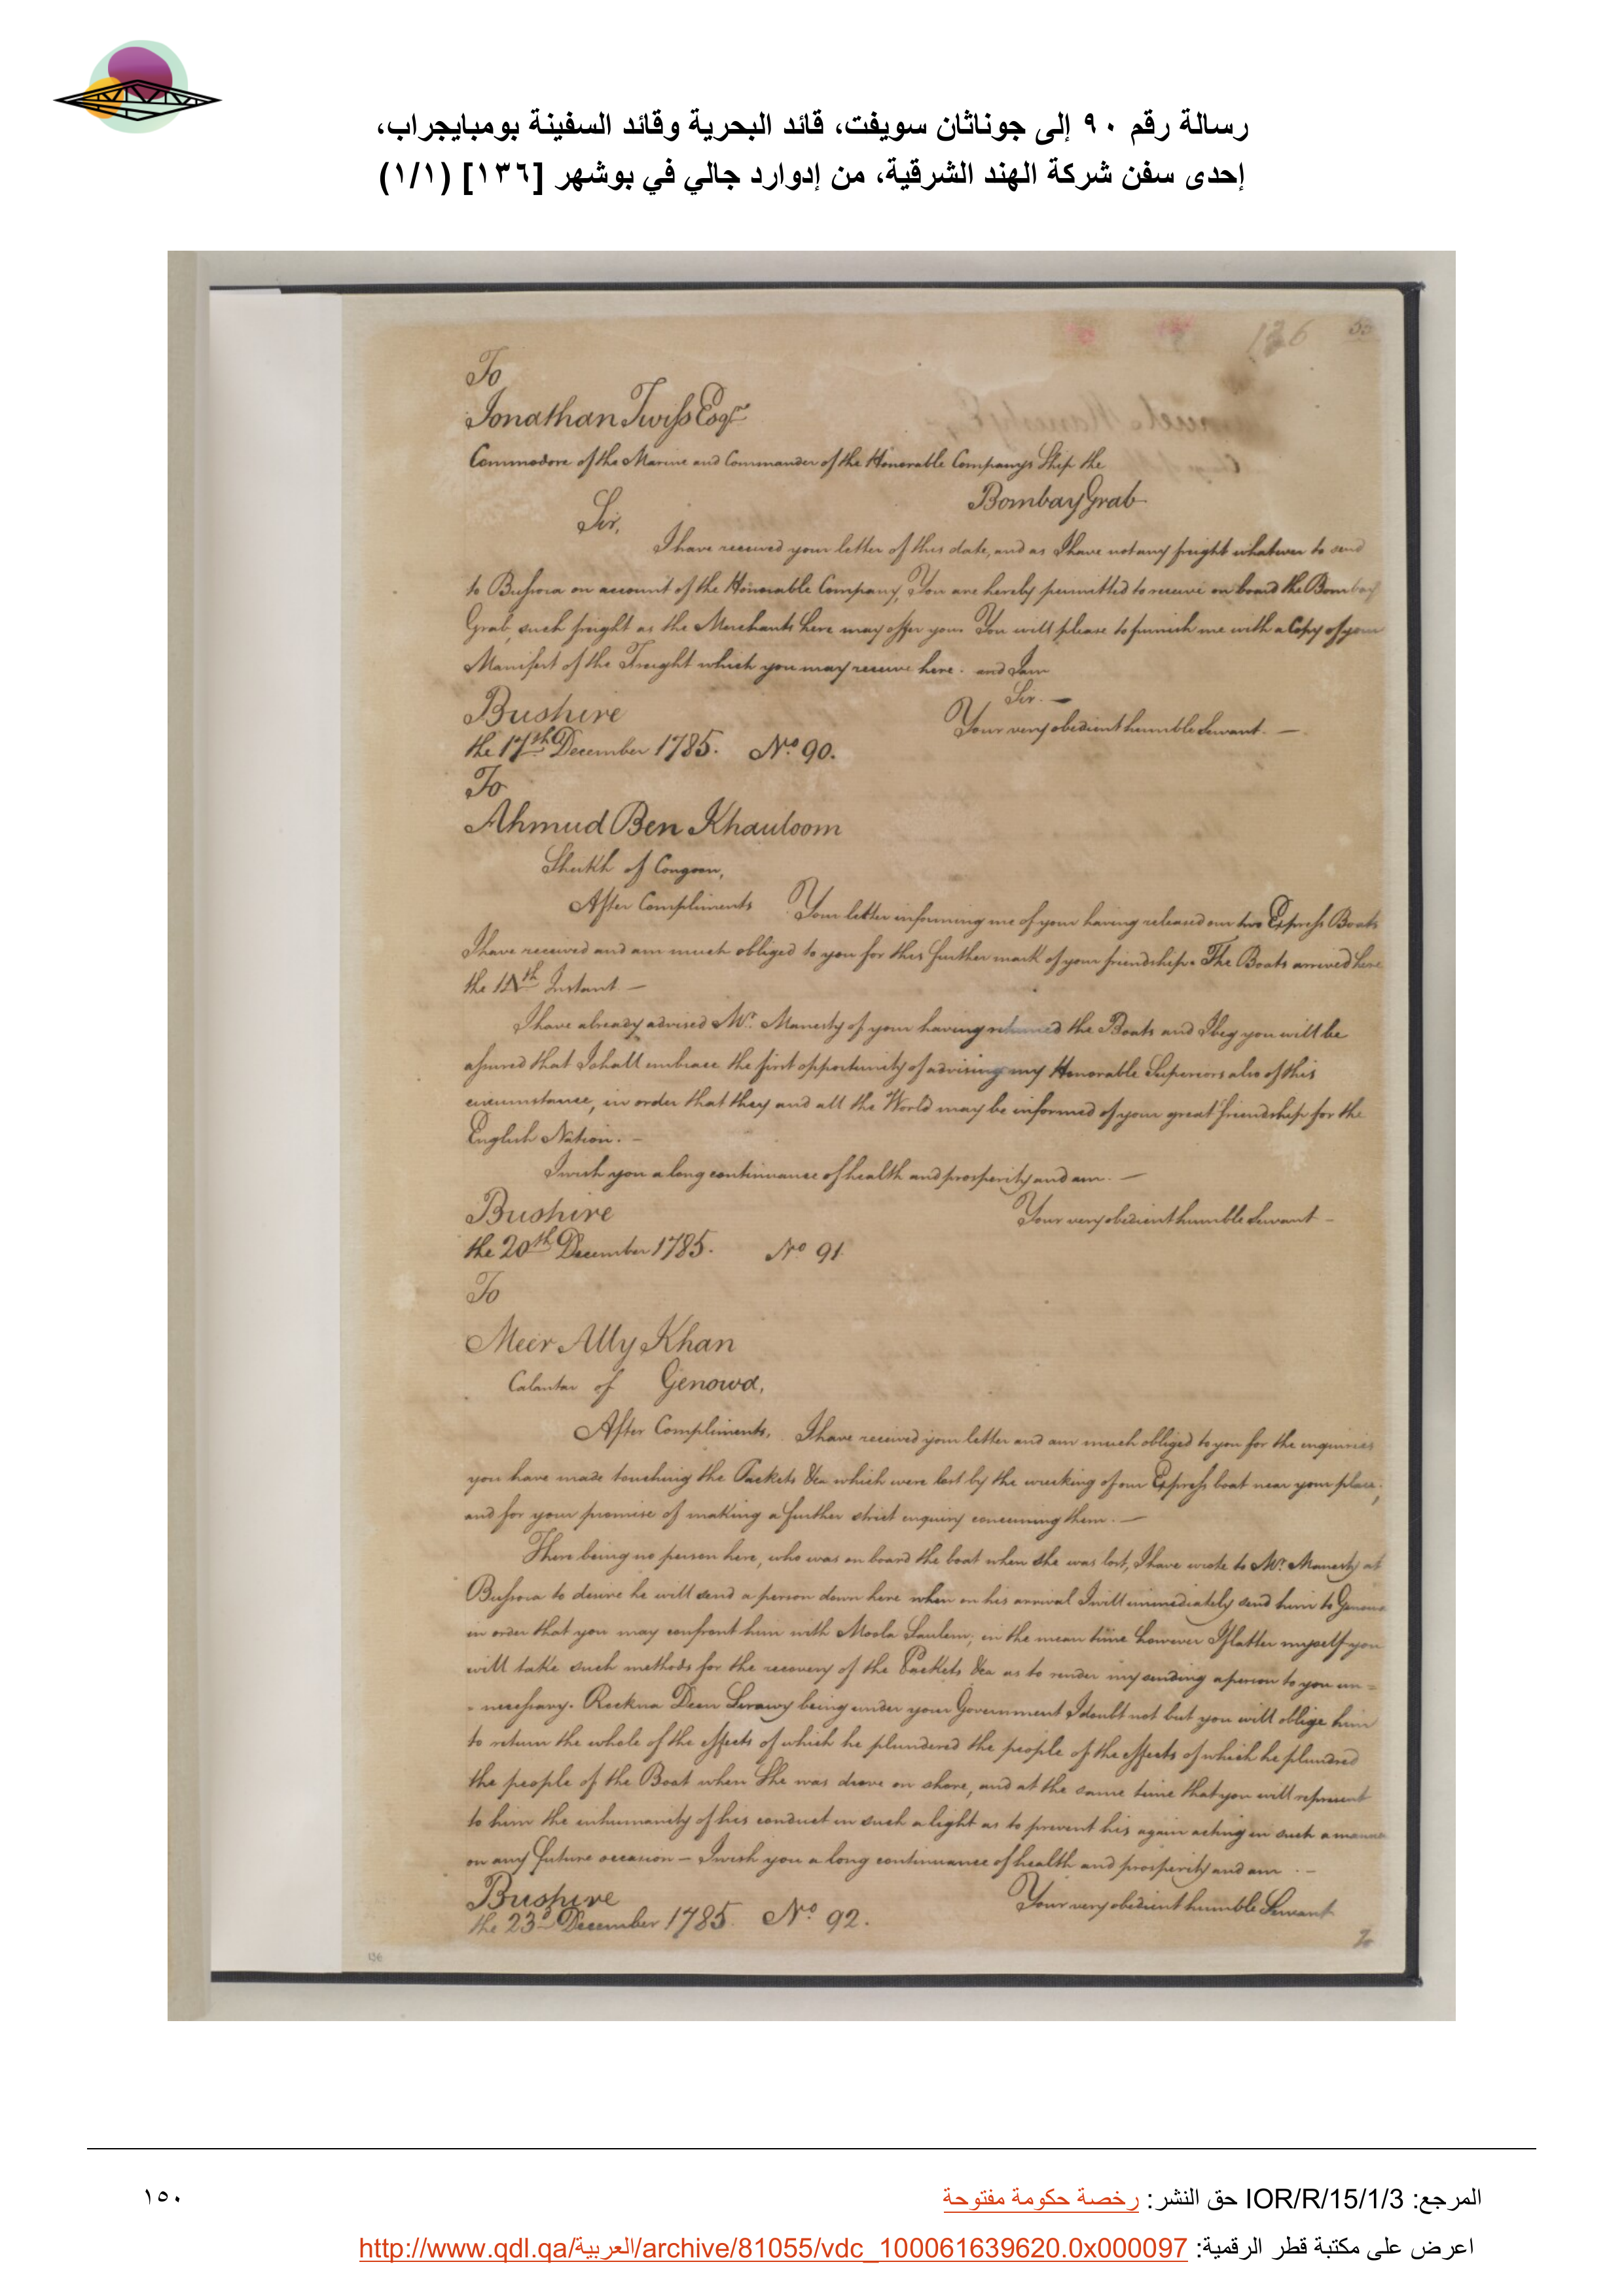 رسالة رقم ٩٠ إلى جوناثان سويفت، قائد البحرية وقائد السفينة بومبايجراب،
إحدى سفن شركة الهند الشرقية، من إدوارد جالي في بوشهر [١٣٦] (١/١)
136
To
Jonathan Twiss Esqr
Commodore of the Marine and Commander of the Honorable Companys Ship the
Bombay Grab
Sir,
I have received your letter of this date, and as I have not any freight whatever to send
to Bussora on account of the Honorable Company, You are hereby permitted to receive on board the Bombay
Grab, such freight as the Merchants here may offer you. You will please to furnish me with a Copy of your
Manifest of the Freight which you may receive here. and I am
Sir. —
Bushire
Your very obedient humble Servant. —
the 17th December 1785. No 90.
To
Ahmud Ben Khauloom
Sheikh of Congoon,
After Compliments Your letter informing me of your having released our two Express Boats
I have received and am much obliged to you for this further mark of your friendship. The Boats arrived here
the 14th Instant —
I have already advised Mr. Manesty of your having returned the Boats and I beg you will be
assured that I shall embrace the first opportunity of advising my Honorable Superiors also of this
circumstance, in order that they and all the World may be informed of your great friendship for the
English Nation. —
I wish you a long continuance of health and prosperity and am. —
Bushire
Your very obedient humble Servant —
the 20th December 1785. No 91.
To
Meer Ally Khan
Calantar of Genowa,
After Compliments, I have received your letter and am much obliged to you for the enquiries
you have made touching the Packets &ca which were lost by the wrecking of our Express boat near your place;
and for your promise of making a further strict enquiry concerning them. —
There being no person here, who was on board the boat when she was lost, I have wrote to Mr. Manesty at
Bussora to desire he will send a person down here when on his arrival I will immediately send him to Genowa
in order that you may confront him with Moola Saulem; in the mean time however I flatter myself you
will take such methods for the recovery of the Packets &ca as to render my sending a person to you un=
=necessary. Rockna Deen Lirawy being under your Government I doubt not but you will oblige him
to return the whole of the effects of which he plundered the people of the effects of which he plundred
the people of the Boat when She was drove on shore, and at the same time that you will represent
to him the inhumanity of his conduct in such a light as to prevent his again acting in such a manner
on any future occasion — I wish you a long continuance of health and prosperity and am. —
Bushire
Your very obedient humble Servant
the 23d December 1785. No 92.
To
136
المرجع: IOR/R/15/1/3 حق النشر: رخصة حكومة مفتوحة
١٥٠
اعرض على مكتبة قطر الرقمية: http://www.qdl.qa/العربية/archive/81055/vdc_100061639620.0x000097